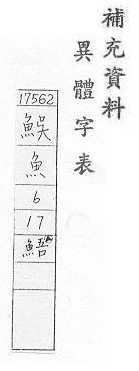 補充資料
異體字表
17562
魚
6
17